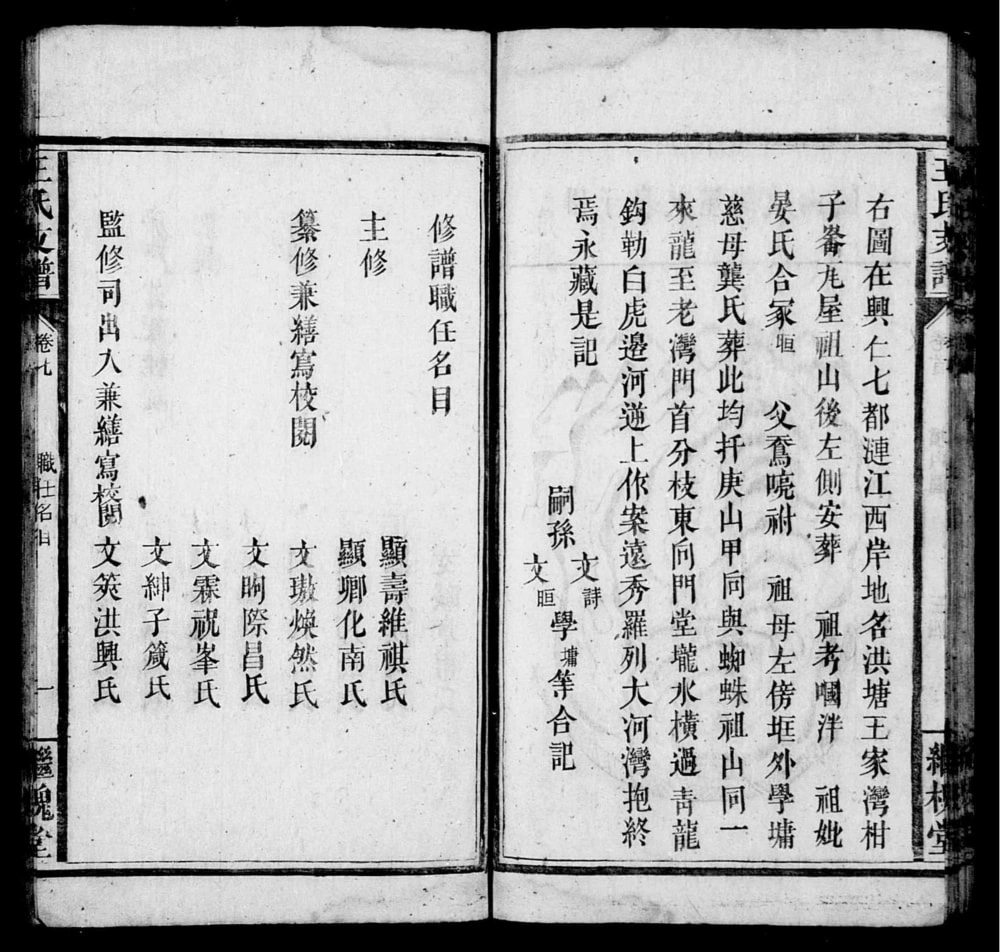 右圖在興仁七都漣江西岸地名洪塘王家灣柑
子崙瓦屋祖山後左側安葬 祖考嘓泮 祖妣
晏氏合冢 垣 父鴦喨祔 祖母左傍𡉏外學墉
慈母龔氏葬此均扦庚山甲向與蜘蛛祖山同一
來龍至老灣門首分枝東向門堂壠水橫過青龍
鈎勒白虎邊河逆上作案遠秀羅列大河灣抱終
焉永藏是記
嗣孫 文詩 文晅 學墉等合記
王氏支譜
修譜職任名目
主修
顯壽維祺氏
顯卿化南氏
纂修兼繕寫校閱
文璈煥然氏
文晌際昌氏
文霖祝峯氏
文紳子箴氏
監修司出入兼繕寫校閱
文筴洪興氏
王氏支譜 卷七 職任名目 一 繼槐堂